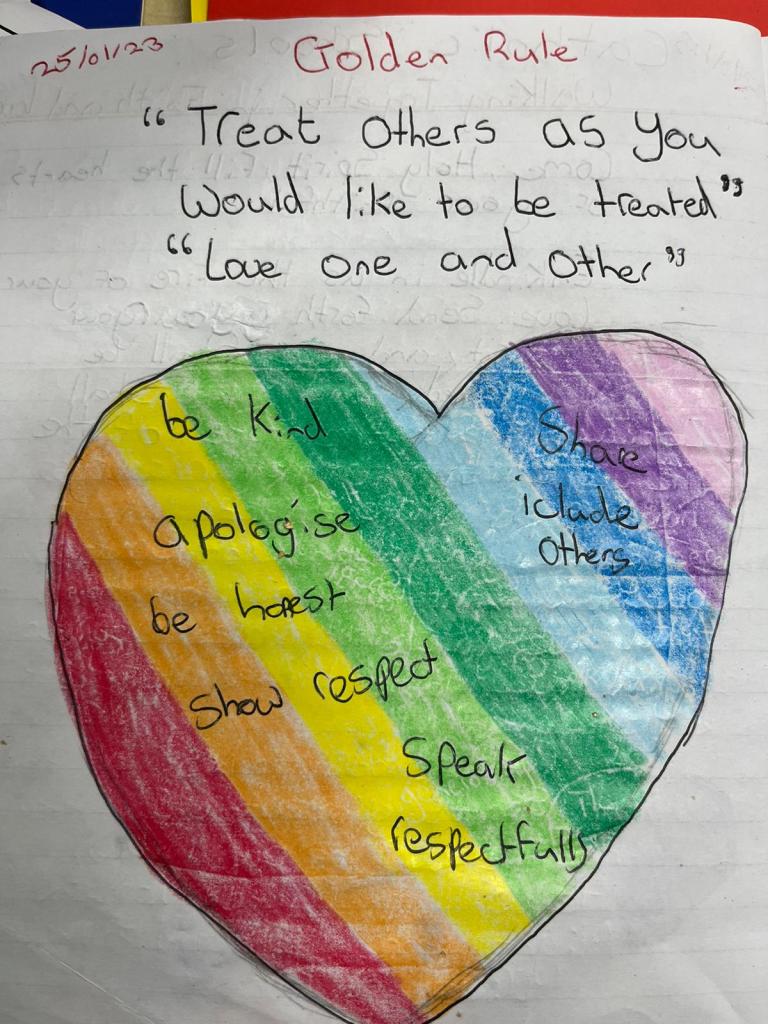 25/01/23
Golden Rule
“Treat others as you
would like to be treated”
“Love one and other”
be kind
apologise
be honest
show respect
Speak
respectfully
Share
iclude
others